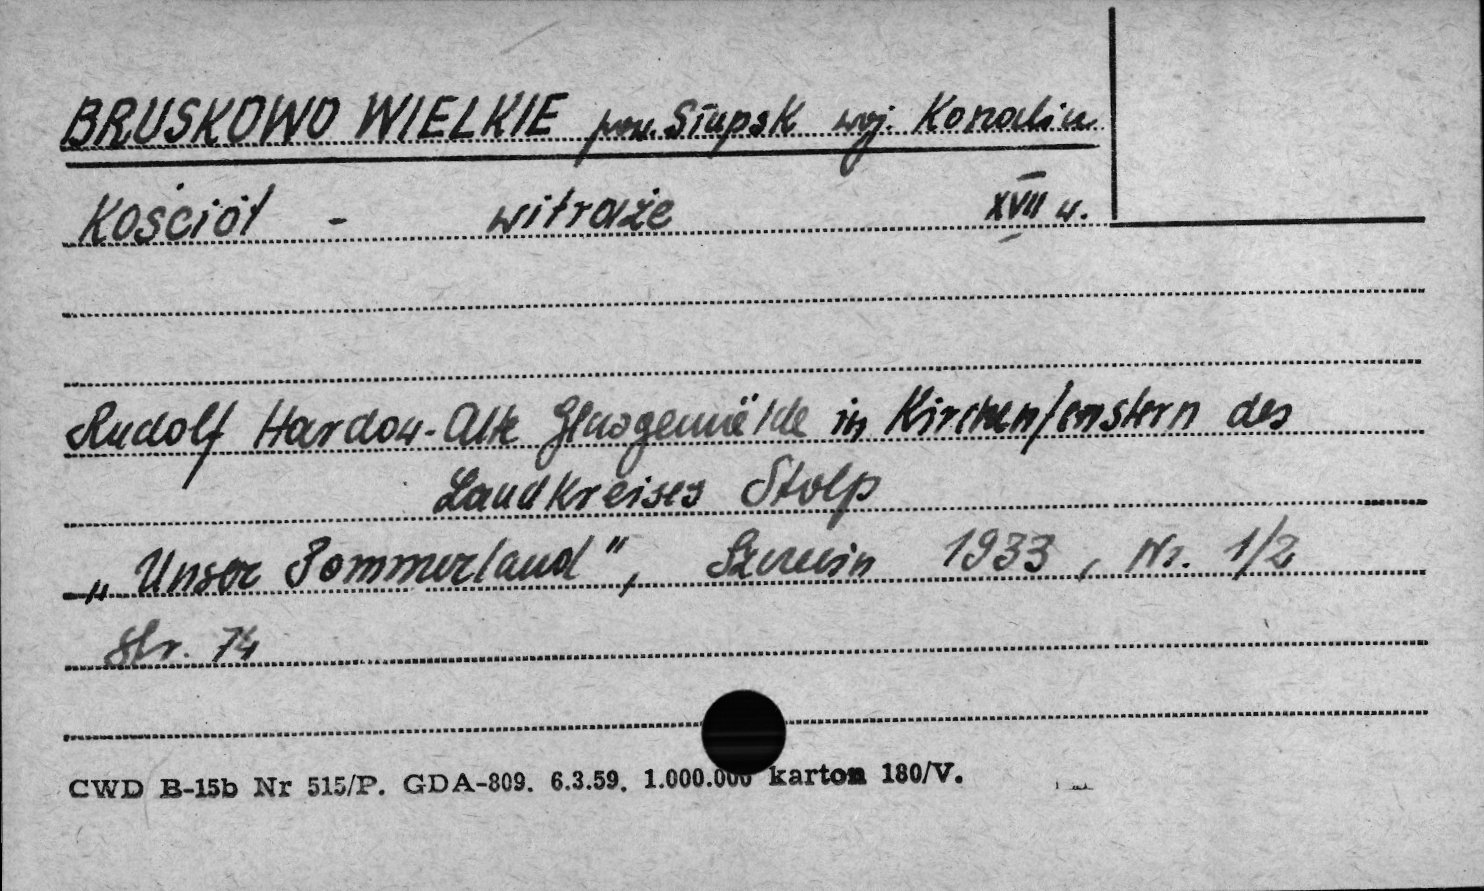 BRUSKOWO WIELKIE pow. Słupsk woj. Koszalin
Kościół - witraże XVII w.
Rudolf Hardow - Alte Glasgemälde in Kirchenfenstern des
Landkreises Stolp
„Unser Pommerland", Szczecin 1933, Nr. 1/2
Str. 74
CWD B-15b Nr 515/P. GDA-809. 6.3.59. 1.000.000 karton 180/V.